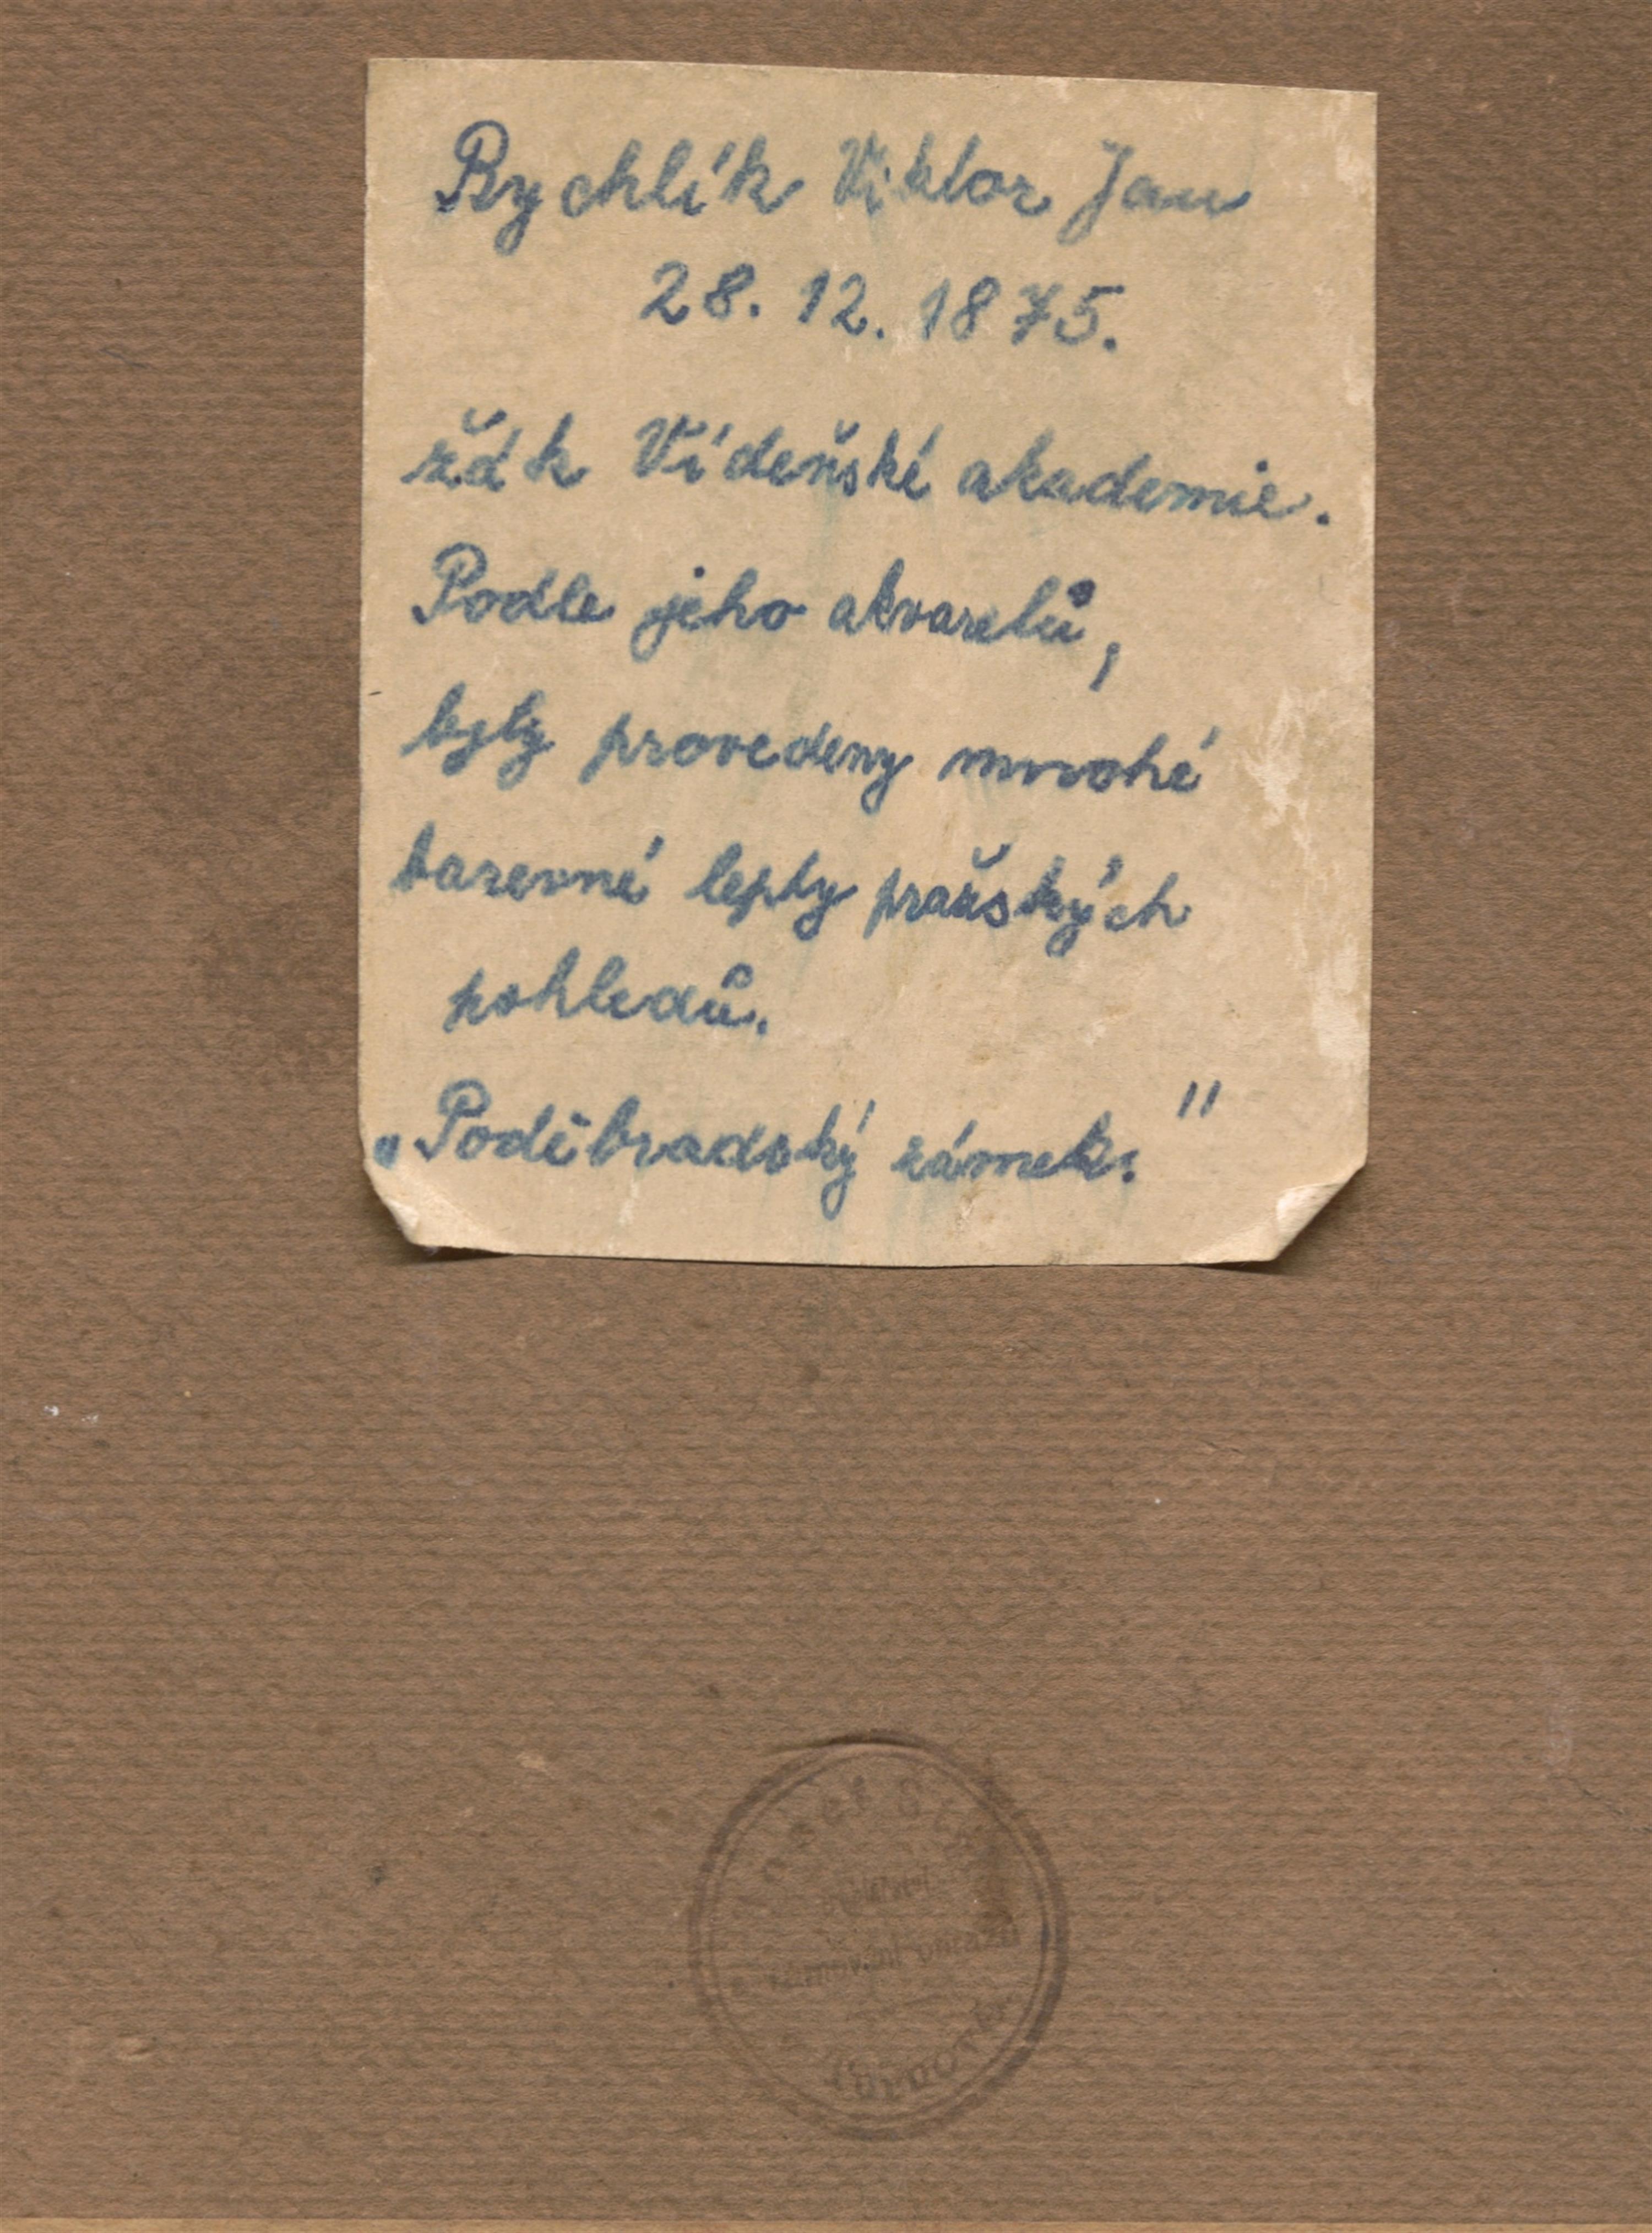 Rychlík Viktor Jan
28. 12. 1875.
žák Vídeňské akademie.
Podle jeho akvarelů,
byly provedeny mnohé
barevné lepty pražských
pohledů.
„Poděbradský zámek."
rámování obrazů